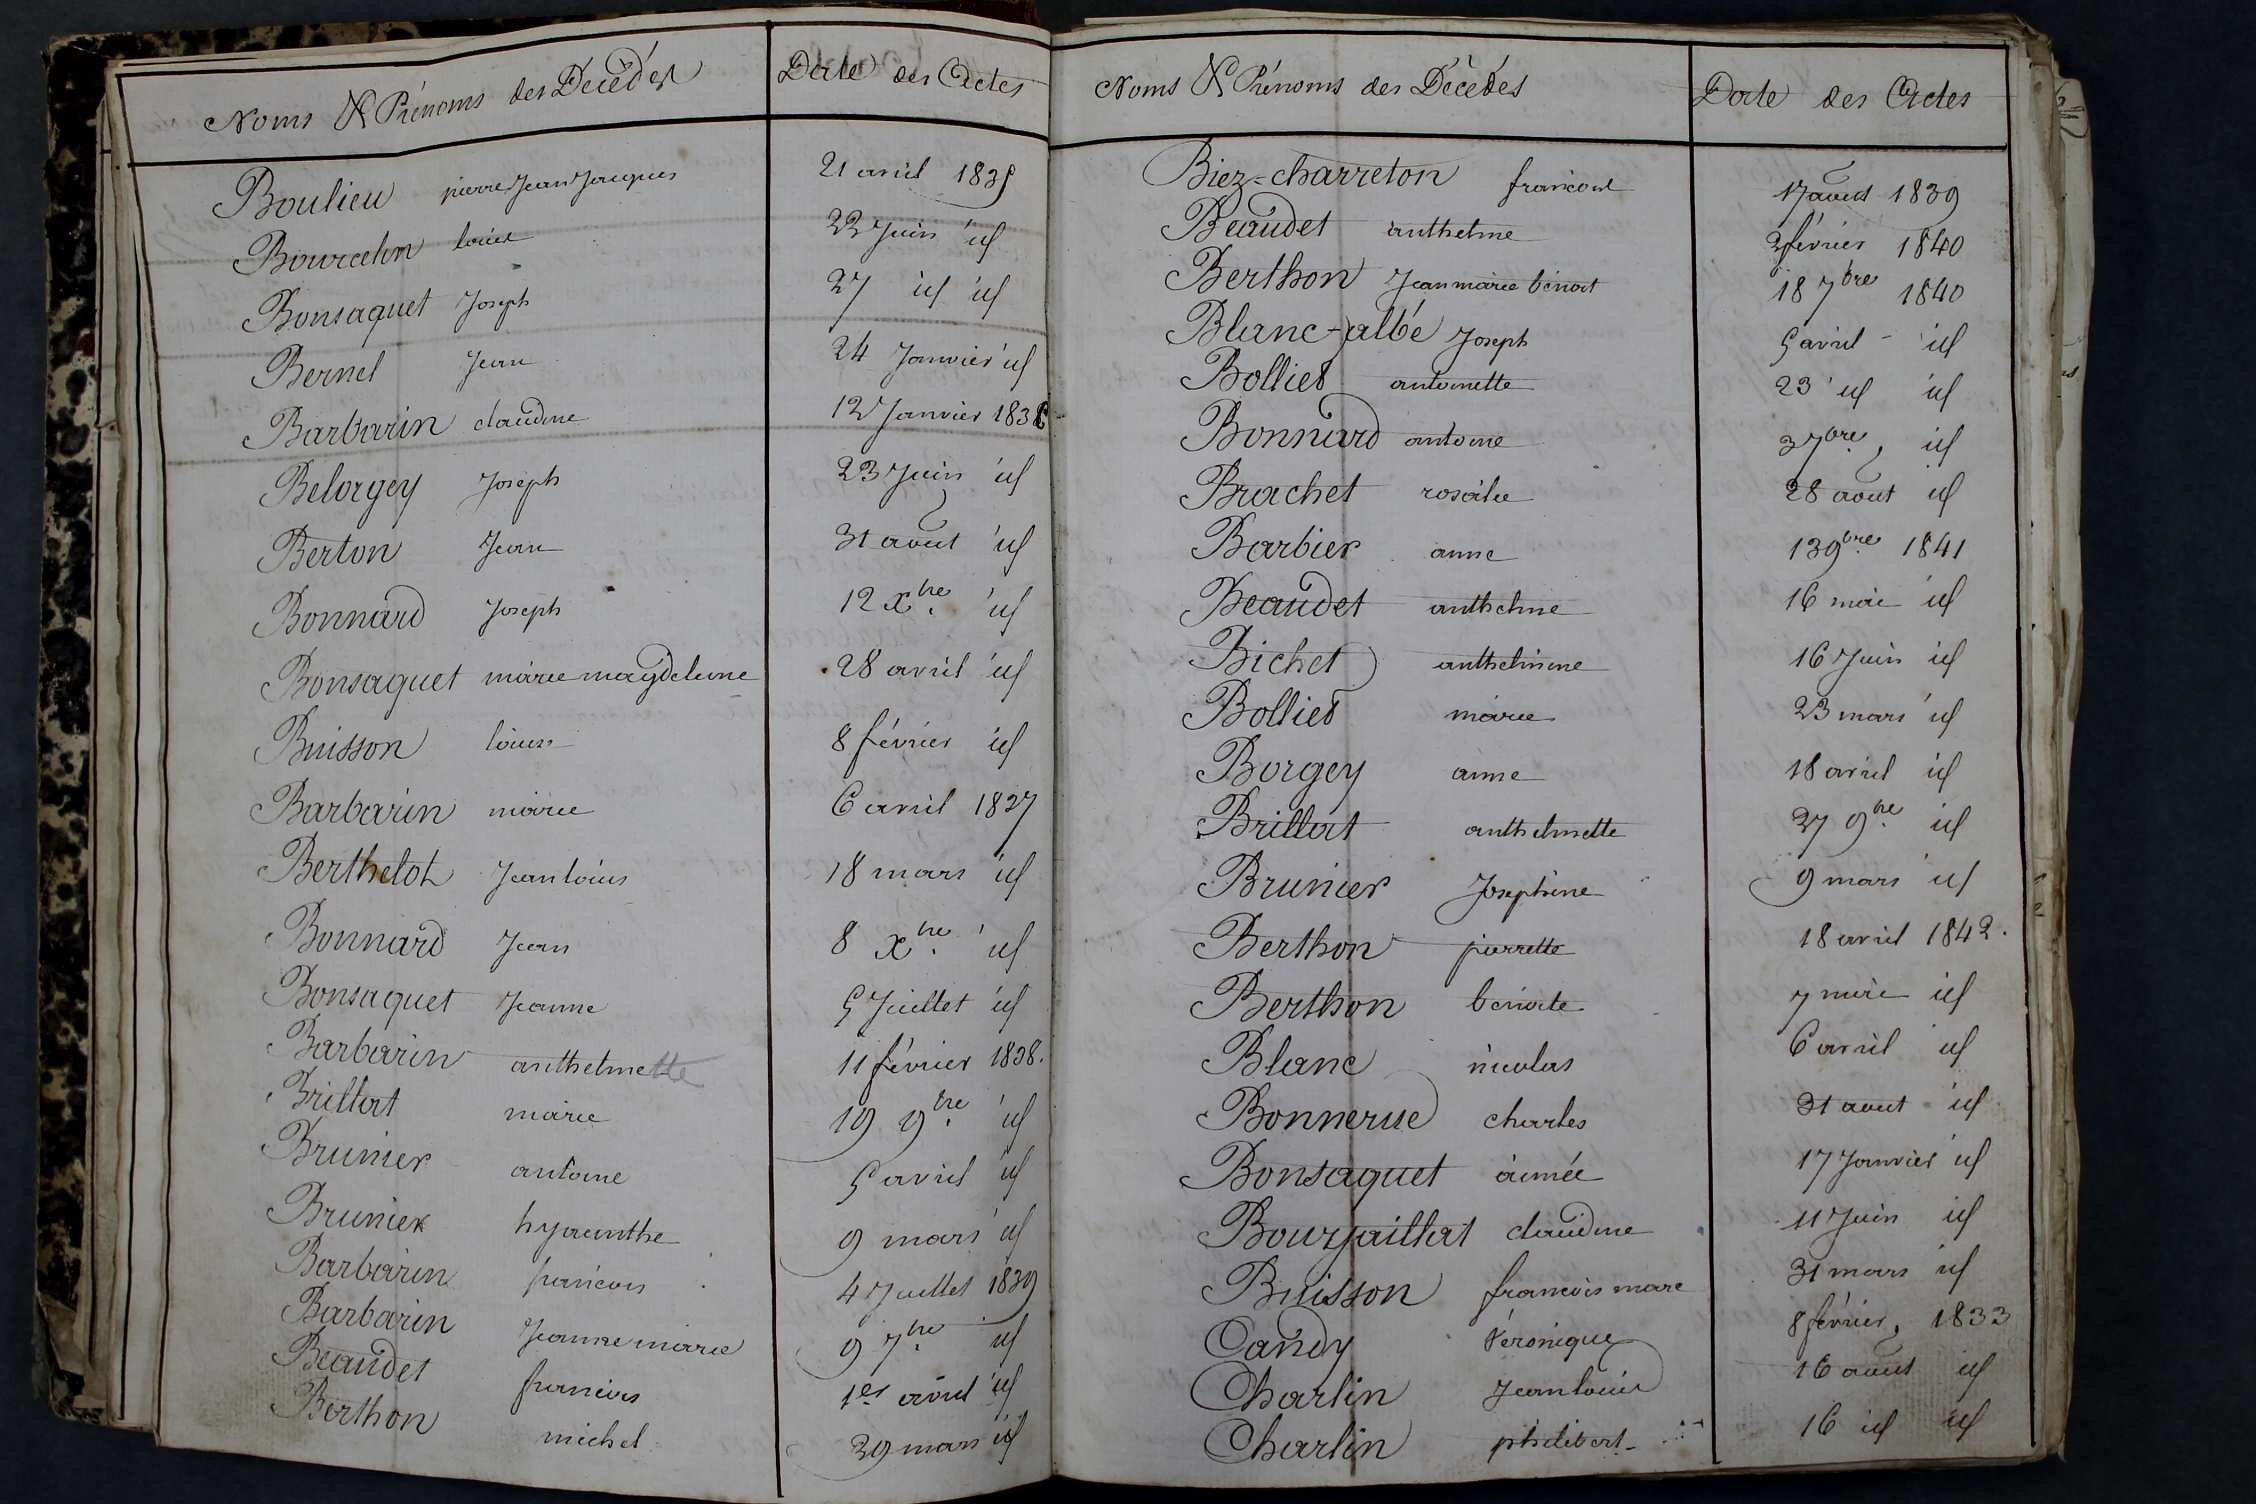 Noms & Prénoms des Décédés Date des Actes
Boulieu pierre Jean Jacques 21 avril 1835
Bourcelin louis 22 Juin id
Bonsaquet Joseph 27 id id
Bernel Jean 24 Janvier id
Barbarin claudine 12 Janvier 1836
Belorgey Joseph 23 Juin id
Berton Jean 31 aout id
Bonnard Joseph 12 Xbre id
Bonsaquet marie magdeleine 28 avril id
Buisson louis 8 février id
Barbarin marie 6 avril 1837
Berthelot Jean louis 18 mars id
Bonnard Jean 8 Xbre id
Bonsaquet Jeanne 5 Juillet id
Barbarin anthelmette 11 février 1838.
Brillat marie 19 9bre id
Brunier antoine 5 avril id
Brunier hyacinthe 9 mars id
Barbarin francois 4 Juillet 1839
Barbarin Jeanne marie 9 7bre id
Beaudet francois 1er aout id
Berthon michel 29 mars id
Noms & Prénoms des Décédés Date des Actes
Biez-charreton francois 17 aout 1839
Beaudet anthelme 2 février 1840
Berthon Jean marie benoit 18 7bre 1840
Blanc-albé Joseph 5 avril - id
Bolliet antoinette 23 id id
Bonnard antoine 3 7bre, id
Brachet rosalie 28 aout id
Barbier anne 13 9bre 1841
Beaudet anthelme 16 mai id
Bichet anthelmine 16 Juin id
Bolliet marie 23 mars id
Borgey anne 18 avril id
Brillat anthelmette 27 9bre id
Brunier Josephine 9 mars id
Berthon pierrette 18 avril 1842.
Berthon benoite 7 mai id
Blanc nicolas 6 avril id
Bonnerue charles 31 aout id
Bonsaquet aimée 17 Janvier id
Bourjaillat claudine 11 Juin id
Buisson francois marc 31 mars id
Candy Véronique 8 février, 1833
Charlin Jean louis 16 aout id
Charlin philibert 16 id id